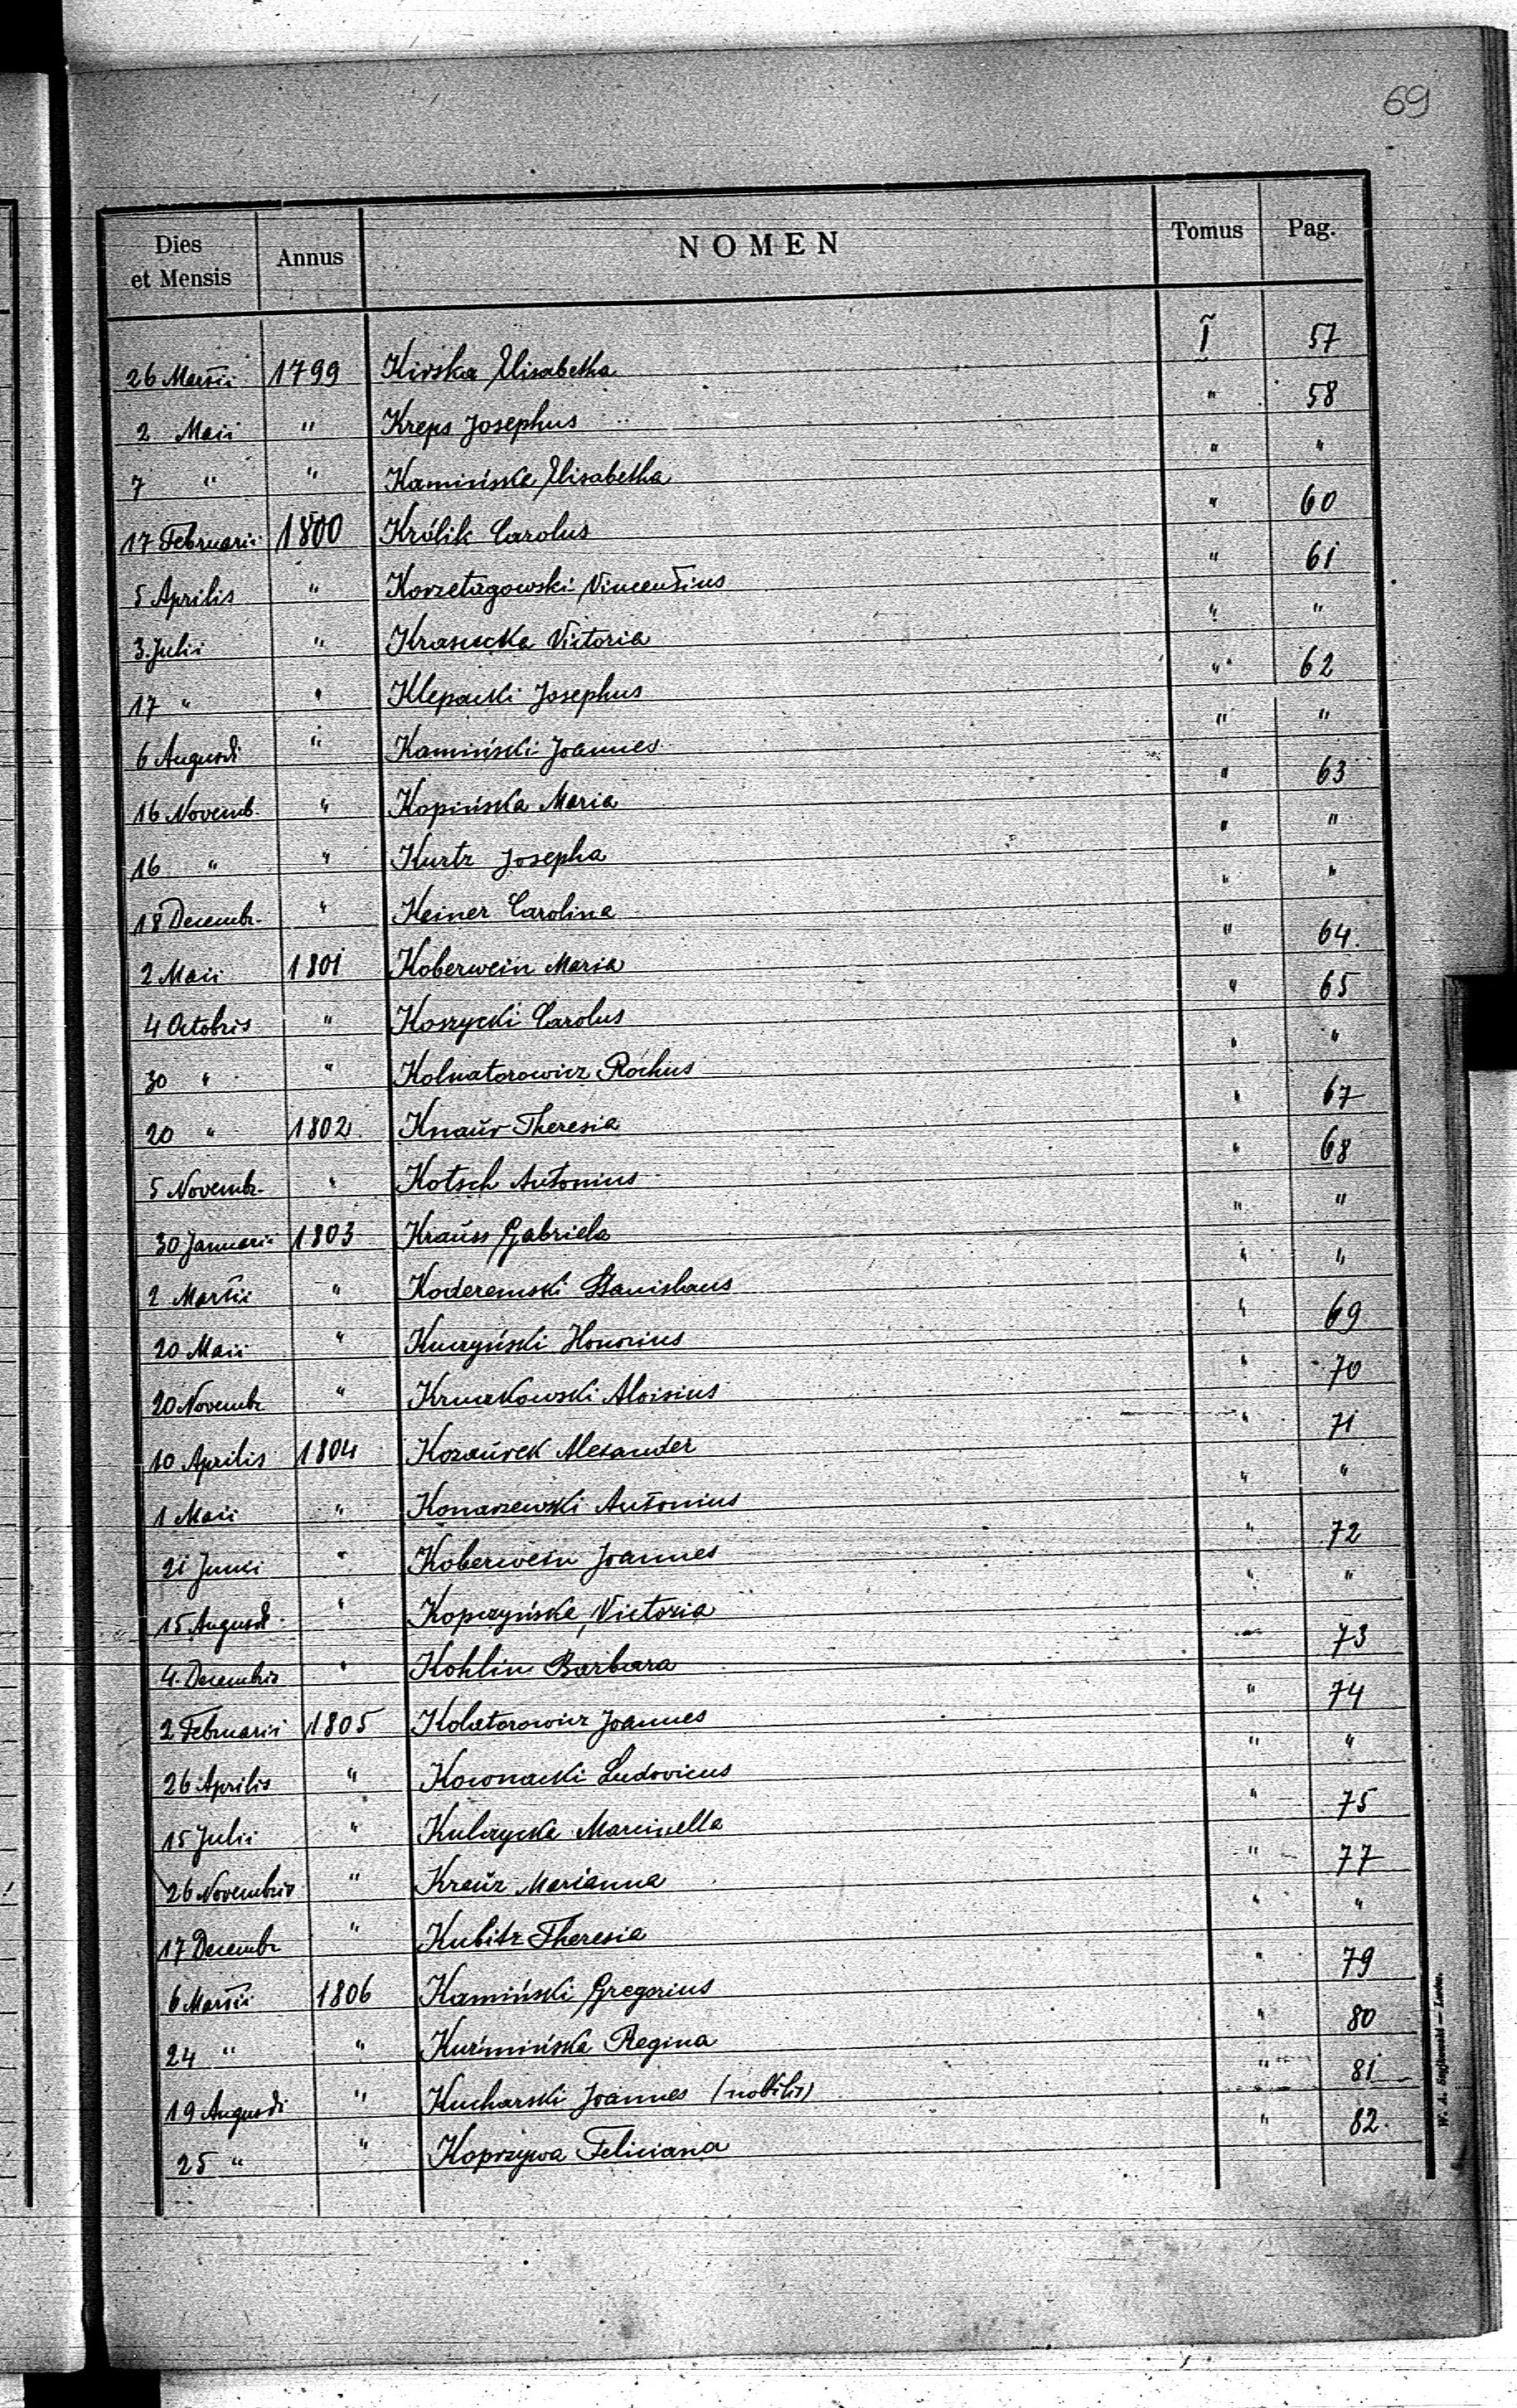 69
Dies et Mensis Annus NOMEN Tomus Pag.
26 Martii 1799 Kirska Elisabetha I 57
2 Maii " Kreps Josephus " 58
7 " " Kamińska Elisabetha " "
17 Februarii 1800 Królik Carolus " 60
5 Aprilis " Vincentius " 61
3 Julii " Krasucka Victoria " "
17 " " Klepacki Josephus " 62
6 Augusti " Kamiński Joannes " "
16 Novemb. " Kopińska Maria " 63
16 " " Kurtz Josepha " "
18 Decembr. " Keiner Carolina " "
2 Maii 1801 Koberwein Maria " 64
4 Octobris " Koszycki Carolus " 65
30 " " Kolnatorowicz Rochus " "
20 " 1802 Knaŭr Theresia " 67
5 Novembr. " Kotsch Antonius " 68
30 Januarii 1803 Kraŭss Gabriela " "
2 Martii " Koderemski Stanislaus " "
20 Maii " Kuczyński Honorius " 69
20 Novembr " Kruczkowski Aloisius " 70
10 Aprilis 1804 Kozaŭrek Alexander " 71
1 Maii " Konarzewski Antonius " "
21 Junii " Koberwein Joannes " 72
15 Augusti " Kopczyńska Victoria " "
4. Decembris " Kohlin Barbara " 73
2 Februarii 1805 Kolatorowicz Joannes " 74
26 Aprilis " Kowonacki Ludovicus " "
15 Julii " Kulczycka Marcinella " 75
26 Novembris " Kreŭz Marianna " 77
17 Decembr " Kubitz Theresia " "
6 Martii 1806 Kamiński Gregorius " 79
24 " " Kuźmińska Regina " 80
19 Augusti " Kucharski Joannes (nobilis) " 81
25 " " Koprzywa Feliciana " 82.